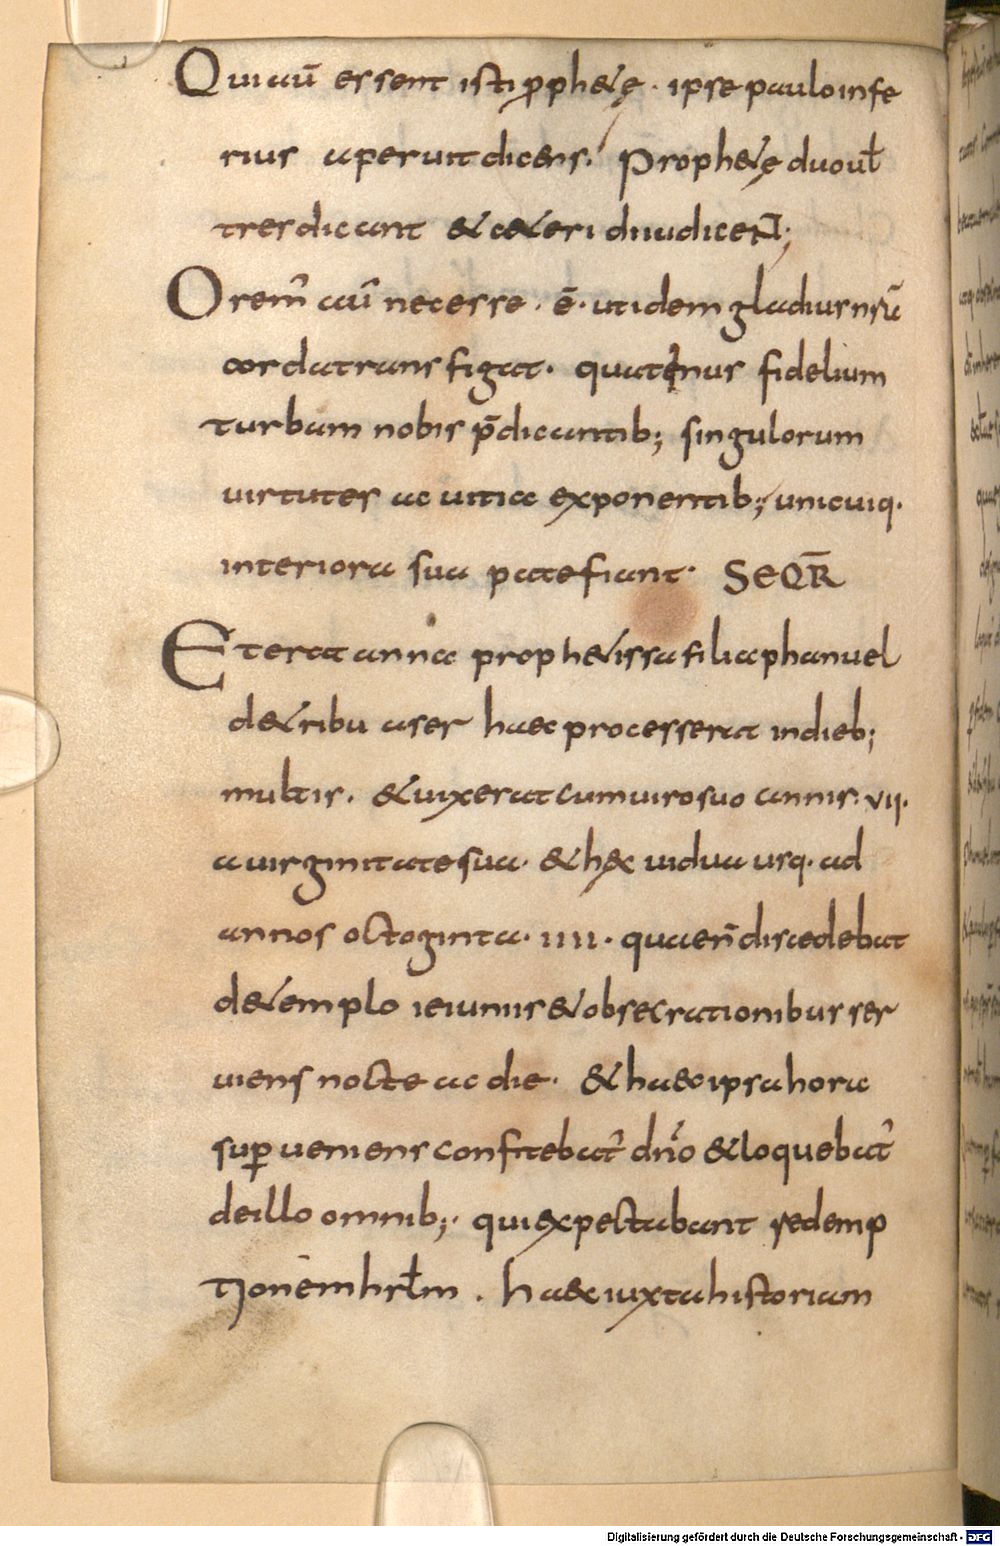 Qui aū essent isti ꝓphetę · ipse paulo infe
rius aperuit dicens. Prophetę duo uł
tres dicant & ceteri diiudicent;
Orem̄ aū necesse · ē · ut idem gladius nr̄ū
corda transfigat · quatenus fidelium
turbam nobis p̄dicantib; singulorum
uirtutes ac uitia exponentib; unicuiq·
interiora sua patefiant · SEQR̄
Et erat anna prophetissa filia phanuel
de tribu aser haec processerat in dieb;
multis · & uixerat cum uiro suo annis · vii ·
a uirginitate sua · & hęc uidua usq· ad
annos octoginta · iiii · quae n̄ discedebat
de templo ieiuniis & obsecrationibus ser
uiens nocte ac die · & haec ipsa hora
suꝑueniens confitebat᷑ dn̄o & loquebat᷑
de illo omnib; · qui expectabant redemp
tionem hrl̄m · haec iuxta historiam
Digitalisierung gefördert durch die Deutsche Forschungsgemeinschaft - DFG